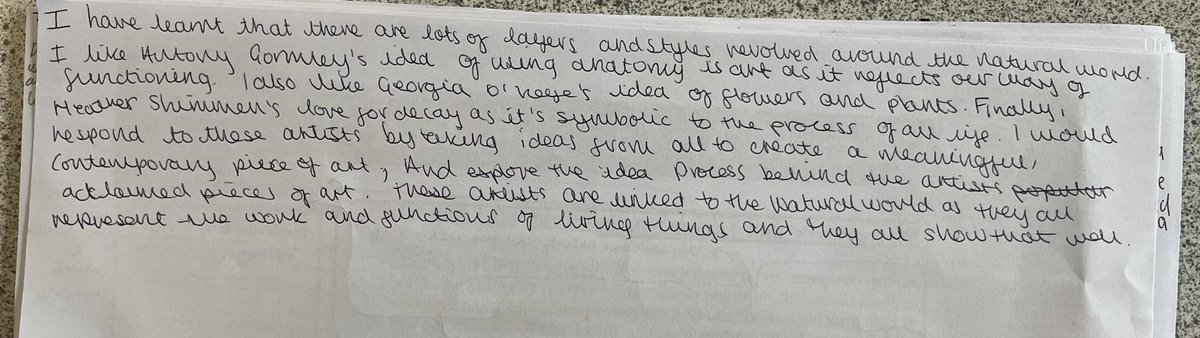 I have learnt that there are lots of layers and styles revolved around the natural world.
I like Antony Gormley's idea of using anatomy is art as it reflects our way of
functioning. I also like Georgia O'Keefe's idea of flowers and plants. Finally,
Heather Shimmen's love for decay as it's symbolic to the process of all life. I would
respond to these artists by taking ideas from all to create a meaningful,
contemporary piece of art, And expore the idea process behind the artists popular
acclaimed pieces of art. These artists are linked to the Natural world as they all
represent the work and functions of living things and they all show that well.